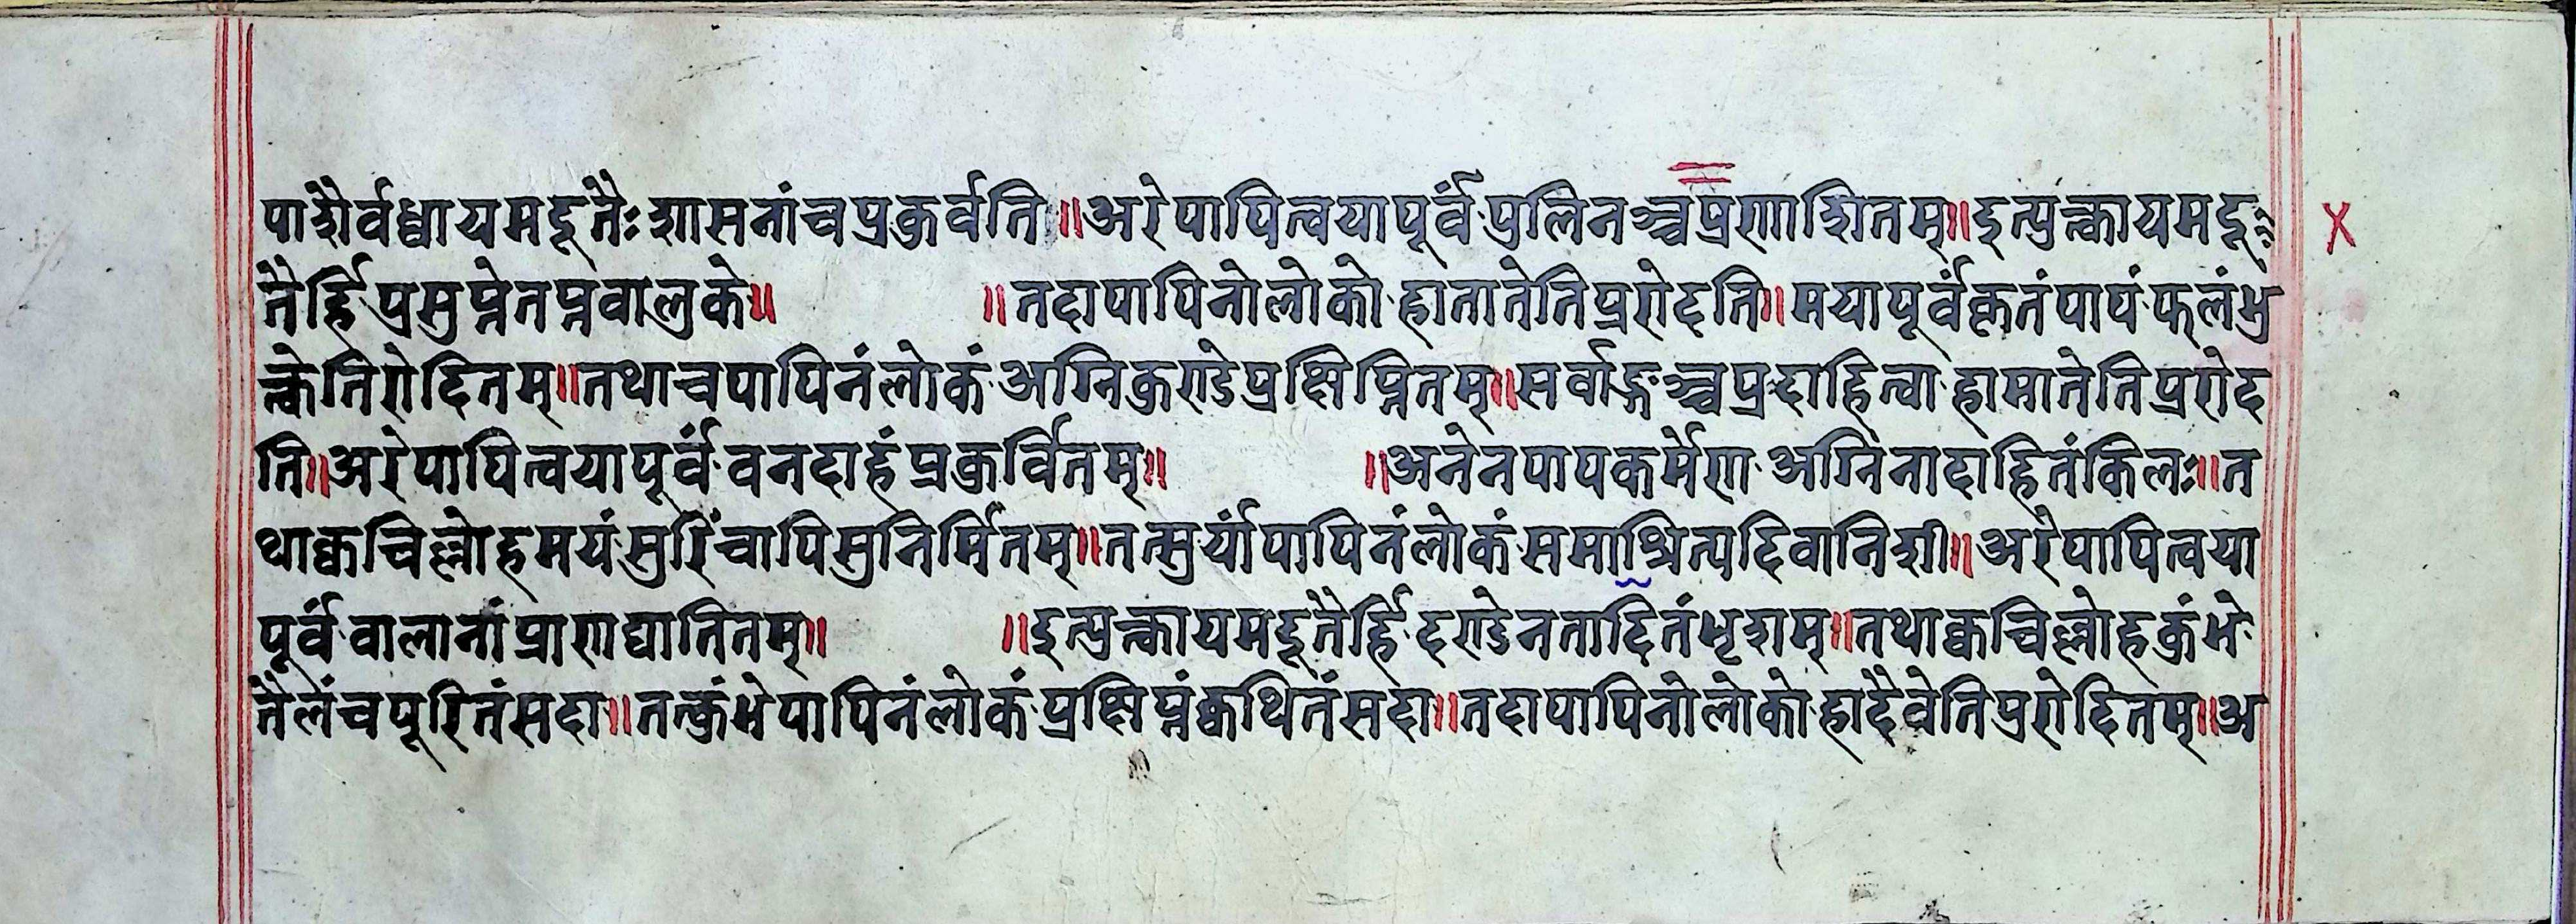 पाशैर्वध्वायमदूतैः शासनांचप्रकुर्वति॥अरेपापित्वयापूर्वं पुलिनञ्चप्रणाशितम्॥इत्युक्त्वायमदू
तैर्हि प्रसुप्तेतप्तवालुके॥ ॥तदापापिनोलोको हातातेतिप्ररोदति॥मयापूर्वंकृतंपापं फलंभु
क्त्वेतिरोदितम्॥तथाचपापिनंलोकं अग्निकुण्डेप्रक्षिप्तितम्॥सर्वाङ्गञ्चप्रदाहित्वा हामातेतिप्ररोद
ति॥अरेपापित्वयापूर्वं वनदाहंप्रकुर्वितम्॥ ॥अनेनपापकर्मेणा अग्निनादाहितंकिलः॥त
थाक्वचिल्लोहमयंसुरिंचापिसुनिर्मितम्॥तत्सुर्यांपापिनंलोकंसमाश्रित्यदिवानिशी॥अरेपापित्वया
पूर्वं वालानांप्राणाद्यातितम्॥ ॥इत्युक्त्वायमदूतैर्हि दण्डेनतादितंभृशम्॥तथाक्वचिल्लोहकुंभे
तैलंचपूरितंसदा॥तत्कुंभेपापिनंलोकं प्रक्षिप्तंक्वथितंसदा॥तदापापिनोलोको हादैवेतिप्ररोदितम्॥अ